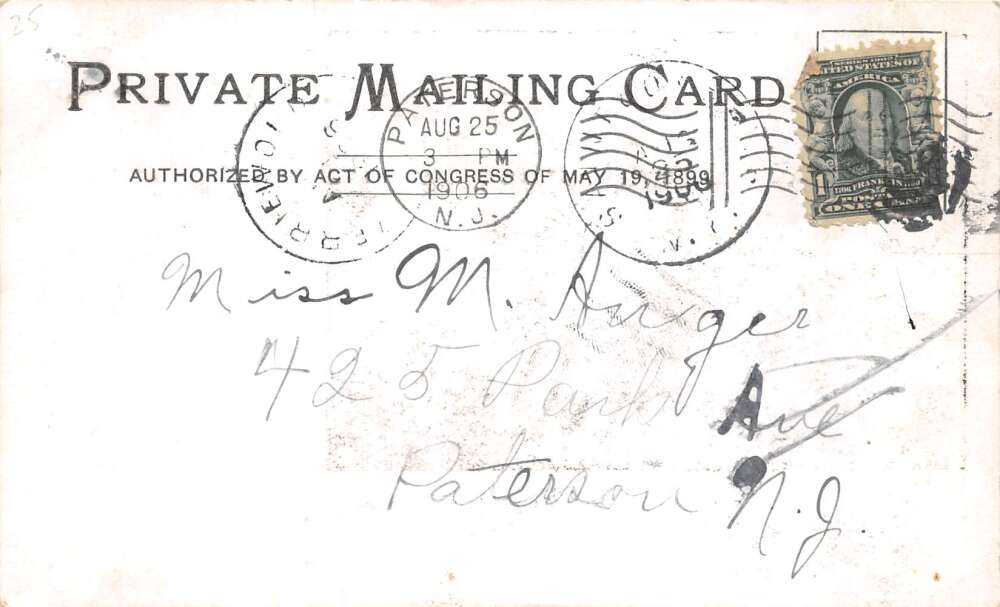 25
PRIVATE MAILING CARD
AUTHORIZED BY ACT OF CONGRESS OF MAY 19, 1899
PATERSON
AUG 25
3 PM
1906
N.J.
SERIES 1902
UNITED STATES OF
AMERICA
1
FRANKLIN
Miss M. Anger
425 Park Ave
Paterson N.J.